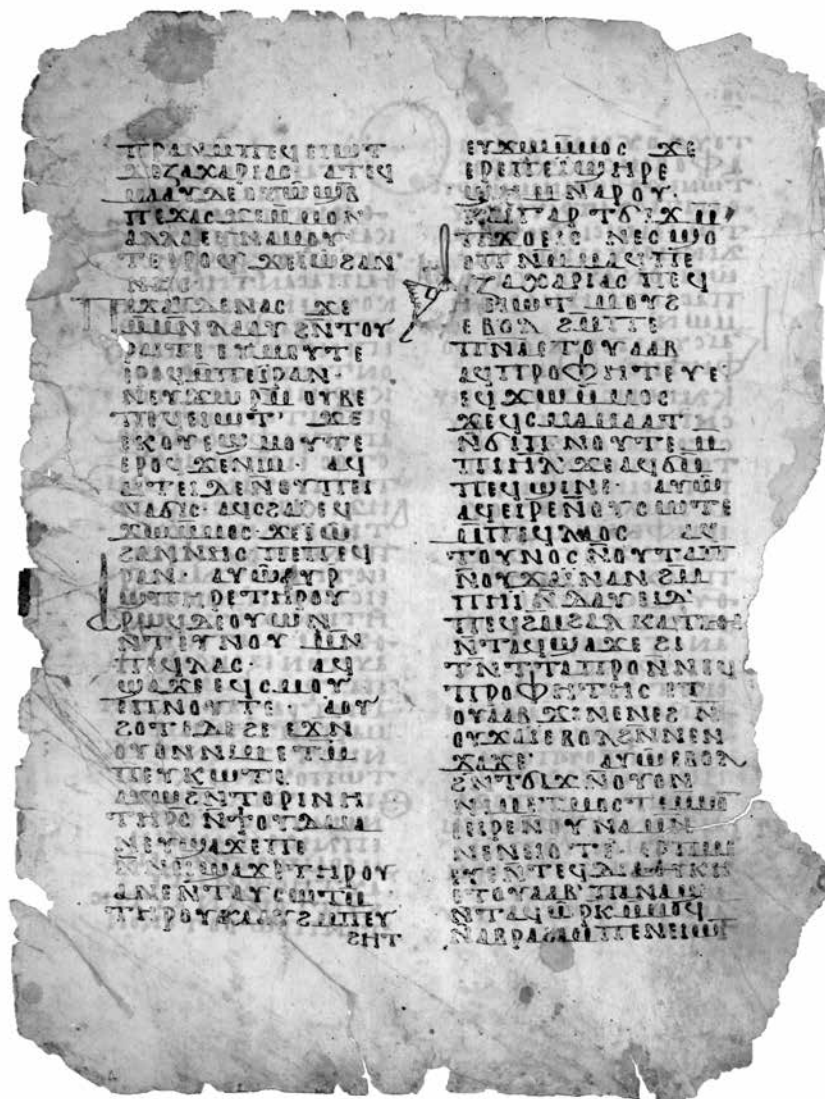 ⲡⲣⲁⲛⲙⲡⲉϥⲉⲓⲱⲧ
ϫⲉⲍⲁⲭⲁⲣⲓⲁⲥ ⲁⲧⲉϥ
ⲙⲁⲁⲩⲇⲉⲟⲩⲱϣⲃ
ⲡⲉϫⲁⲥϫⲉⲙⲙⲟⲛ
ⲁⲗⲗⲁⲉⲩⲛⲁⲙⲟⲩ
ⲧⲉⲉⲣⲟϥϫⲉⲓⲱϩⲁⲛ
ⲛⲏⲥ
ⲡⲉϫⲁⲩⲇⲉⲛⲁⲥ ϫⲉ
ⲙⲙⲛⲗⲁⲁⲩϩⲛⲧⲟⲩ
ⲣⲁⲧⲉ ⲉⲩⲙⲟⲩⲧⲉ
ⲉⲣⲟϥⲙⲡⲉⲓⲣⲁⲛ·
ⲛⲉⲩϫⲱⲣⲙⲟⲩⲃⲉ
ⲡⲉϥⲉⲓⲱⲧ· ϫⲉ
ⲉⲕⲟⲩⲉϣⲙⲟⲩⲧⲉ
ⲉⲣⲟϥϫⲉⲛⲓⲙ· ⲁϥ
ⲁⲓⲧⲉⲓⲇⲉⲛⲟⲩⲡⲓⲛ
ⲛⲁⲕⲓⲥ·ⲁϥⲥϩⲁⲓⲉϥ
ϫⲱⲙⲙⲟⲥ·ϫⲉⲓⲱ
ϩⲁⲛⲛⲏⲥⲡⲉⲡⲉϥ
ⲣⲁⲛ· ⲁⲩⲱⲁⲩⲣ
ϣⲡⲏⲣⲉⲧⲏⲣⲟⲩ
ⲣⲱϥⲇⲉⲟⲩⲱⲛ
ⲛⲧⲉⲩⲛⲟⲩ ⲙⲛ
ⲡⲉϥⲗⲁⲥ· ⲁϥ
ϣⲁϫⲉⲉϥⲥⲙⲟⲩ
ⲉⲡⲛⲟⲩⲧⲉ· ⲁⲟⲩ
ϩⲟⲧⲉⲇⲉϩⲉ ⲉϫⲛ
ⲟⲩⲟⲛⲛⲓⲙⲉⲧⲙ
ⲡⲉⲩⲕⲱⲧⲉ·
ⲁⲩⲱϩⲛⲧⲟⲣⲓⲛⲏ
ⲧⲏⲣⲥ ⲛϯⲟⲩⲇⲁⲓⲁ
ⲛⲉⲩϣⲁϫⲉⲡⲉ
ⲛⲛⲉⲓϣⲁϫⲉⲧⲏⲣⲟⲩ
ⲁⲛⲉⲛⲧⲁⲩⲥⲱⲧⲙ
ⲧⲏⲣⲟⲩⲕⲁⲁⲩϩⲙⲡⲉⲩ
ϩⲏⲧ
ⲉⲩϫⲱⲙⲙⲟⲥ ϫⲉ
ⲉⲣⲉⲡⲉⲓϣⲏⲣⲉ
ϣⲏⲙⲛⲁⲣⲟⲩ·
ⲕⲁⲓⲅⲁⲣ ⲧϭⲓϫⲙ
ⲡϫⲟⲉⲓⲥ ⲛⲉⲥϣⲟ
ⲟⲡ ⲛⲙⲙⲁϥⲡⲉ
ⲍⲁⲭⲁⲣⲓⲁⲥ ⲡⲉϥ
ⲉⲓⲱⲧ ⲁϥⲙⲟⲩϩ
ⲉⲃⲟⲗ ϩⲙⲡⲉ
ⲡⲛⲁⲉⲧⲟⲩⲁⲁⲃ
ⲁϥⲡⲣⲟⲫⲏⲧⲉⲩⲉ
ⲉϥϫⲱⲙⲙⲟⲥ
ϫⲉϥⲥⲙⲁⲙⲁⲁⲧ
ⲛϭⲓⲡⲛⲟⲩⲧⲉⲙ
ⲡⲓⲏⲗ ϫⲉⲁϥϭⲙ
ⲡⲉϥϣⲓⲛⲉ· ⲁⲩⲱ
ⲁϥⲉⲓⲣⲉⲛⲟⲩⲥⲱⲧⲉ
ⲙⲡⲉϥⲗⲁⲟⲥ ⲁϥ
ⲧⲟⲩⲛⲟⲥⲛⲟⲩⲧⲁⲡ
ⲛⲟⲩϫⲁⲓⲛⲁⲛϩⲙ
ⲡⲏⲓⲛⲇⲁⲩⲉⲓⲇ
ⲡⲉϥϩⲙϩⲁⲗ ⲕⲁⲧⲁⲑⲉ
ⲛⲧⲁϥϣⲁϫⲉ ϩⲓ
ⲧⲛⲧⲧⲁⲡⲣⲟⲛⲛⲉϥ
ⲡⲣⲟⲫⲏⲧⲏⲥ ⲉⲧ
ⲟⲩⲁⲁⲃ ϫⲓⲛⲉⲛⲉϩ ⲛ
ⲟⲩϫⲁⲓⲉⲃⲟⲗϩⲛⲛⲉⲛ
ϫⲁϫⲉ· ⲁⲩⲱⲉⲃⲟⲗ
ϩⲛⲧϭⲓϫⲛⲟⲩⲟⲛ
ⲛⲓⲙⲉⲧⲙⲟⲥⲧⲉⲙⲙⲟ
ⲉⲓⲣⲉⲛⲟⲩⲛⲁⲙⲛ
ⲛⲉⲛⲉⲓⲟⲧⲉ· ⲉⲣⲡⲙⲉ
ⲉⲩⲉⲛⲧⲉϥⲇⲓⲁⲑⲏⲕⲏ
ⲉⲧⲟⲩⲁⲁⲃ ⲡⲁⲛⲁϣ
ⲛⲧⲁϥⲱⲣⲕⲙⲙⲟϥ
ⲛⲁⲃⲣⲁϩⲁⲙⲡⲉⲛⲉⲓⲱⲧ